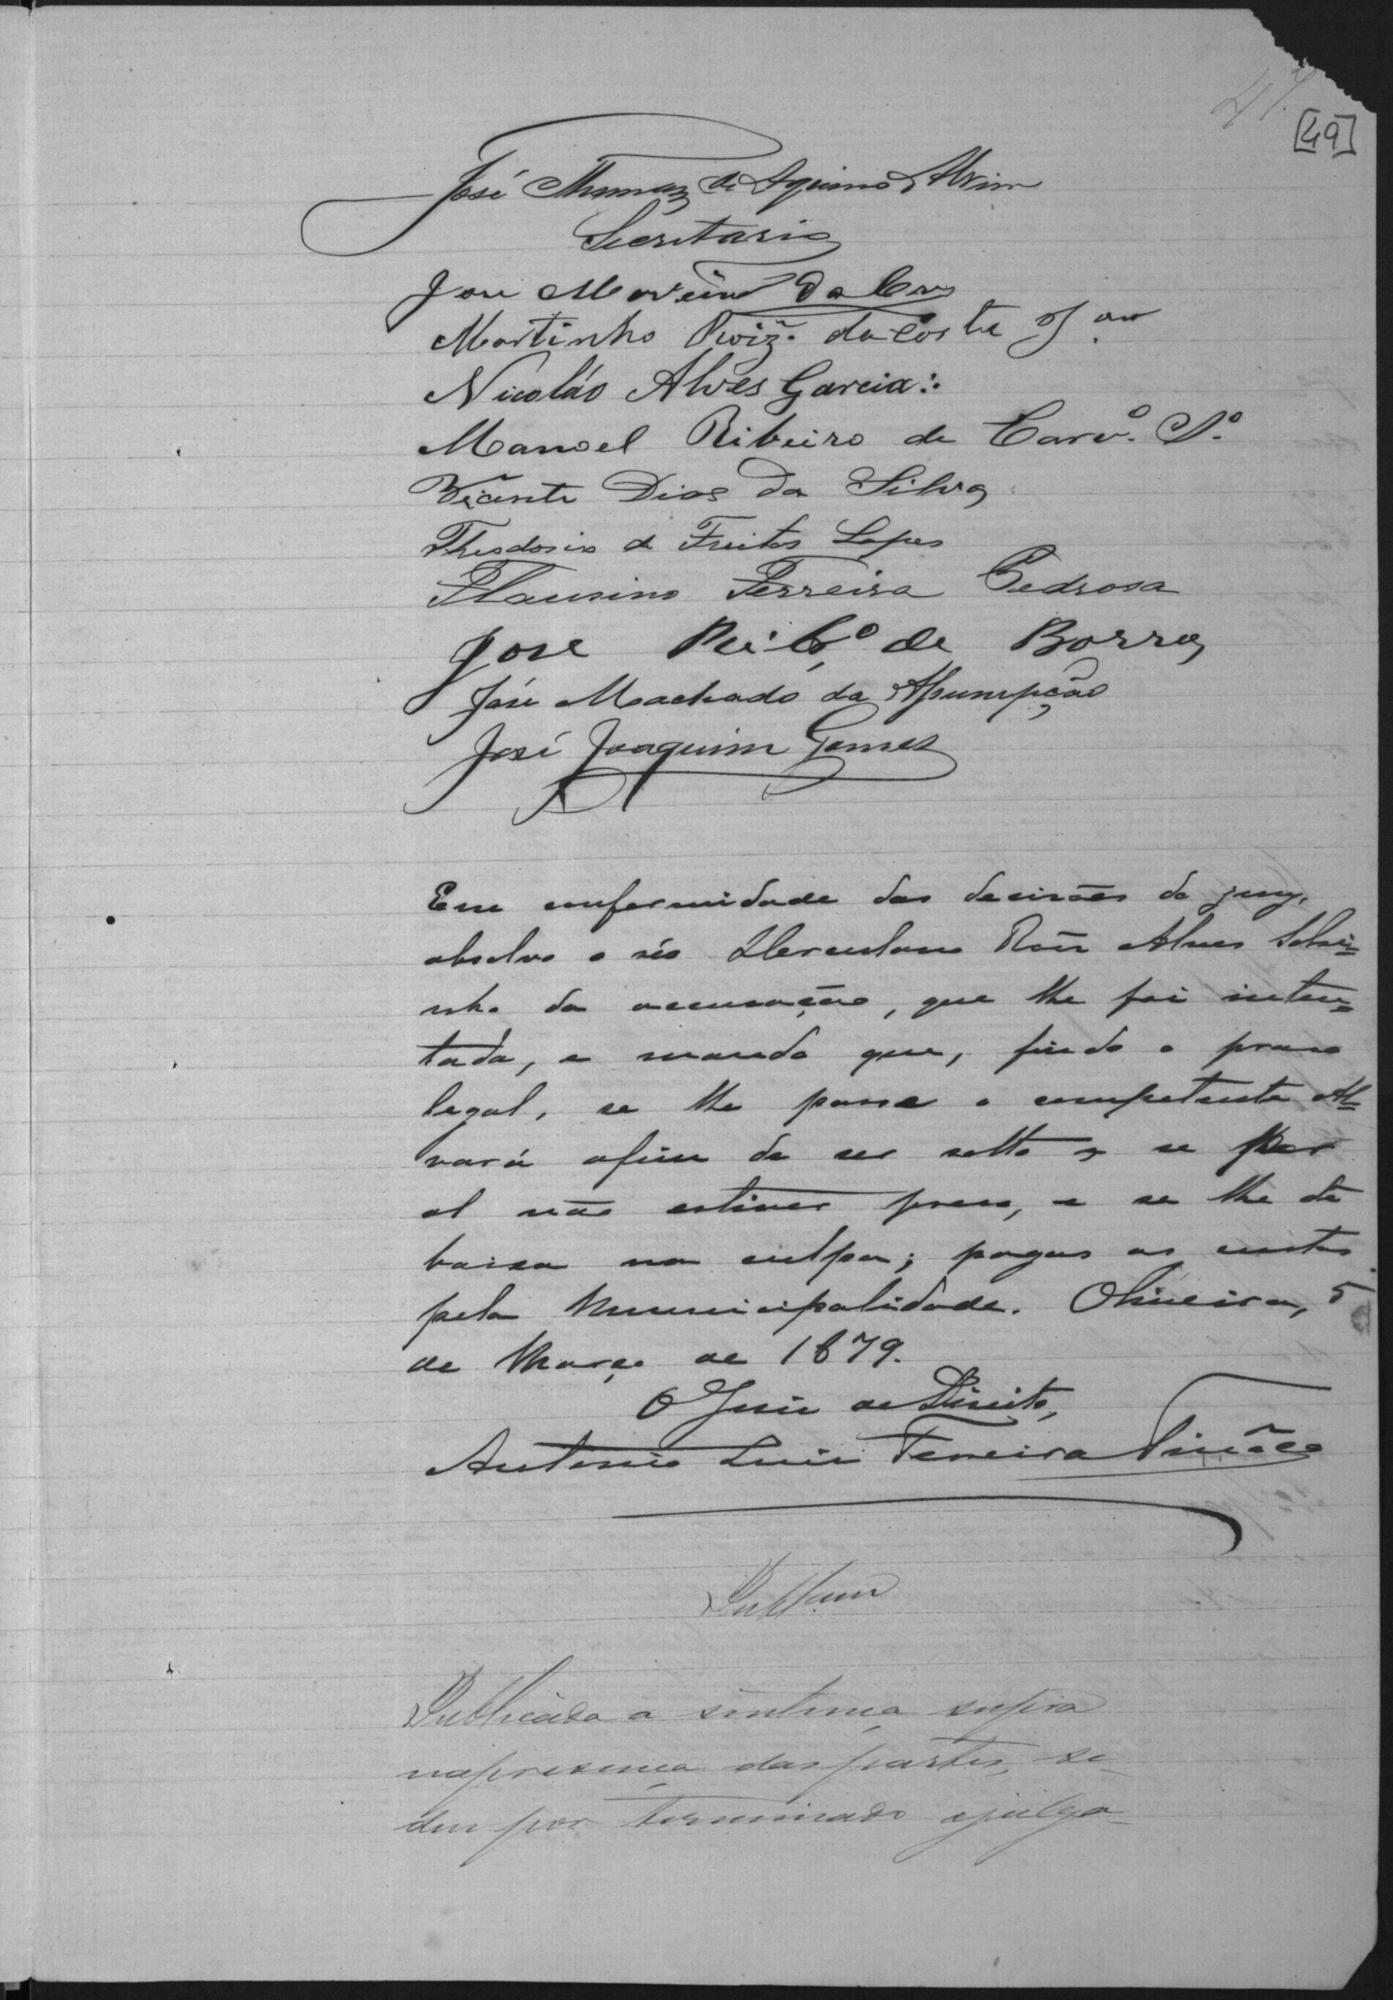 47
[49]
José Thomaz de Aquino Alvim
Secretario
José Moreira da Cruz
Martinho Roiz. da Costa
Nicoláo Alves Garcia:.
Manoel Ribeiro de Carv.º S.º
Vicente Dias da Silva
Theodosio de Freitas Lopes
Flausino Ferreira Pedrosa
Jose Reib.º de Barros
José Machado da Assumpção
José Joaquim Gomes
Em conformidade das decisões do jury,
absolvo o réo Herculano Roiz Alves Sobri=
nho da accusação, que lhe foi inten=
tada, e mando que, findo o praso
legal, se lhe passe o competente Al=
vará afim de ser solto, se por
al não estiver preso, e se lhe dê
baixa na culpa; pagas as custas
pela Municipalidade. Oliveira, 5
de Março de 1879.
O Juiz de Direito,
Antonio Luiz Ferreira Tinôco
Publ.am
Publicada a sentença supra
napresença das partes, se
deu por terminado ojulga-